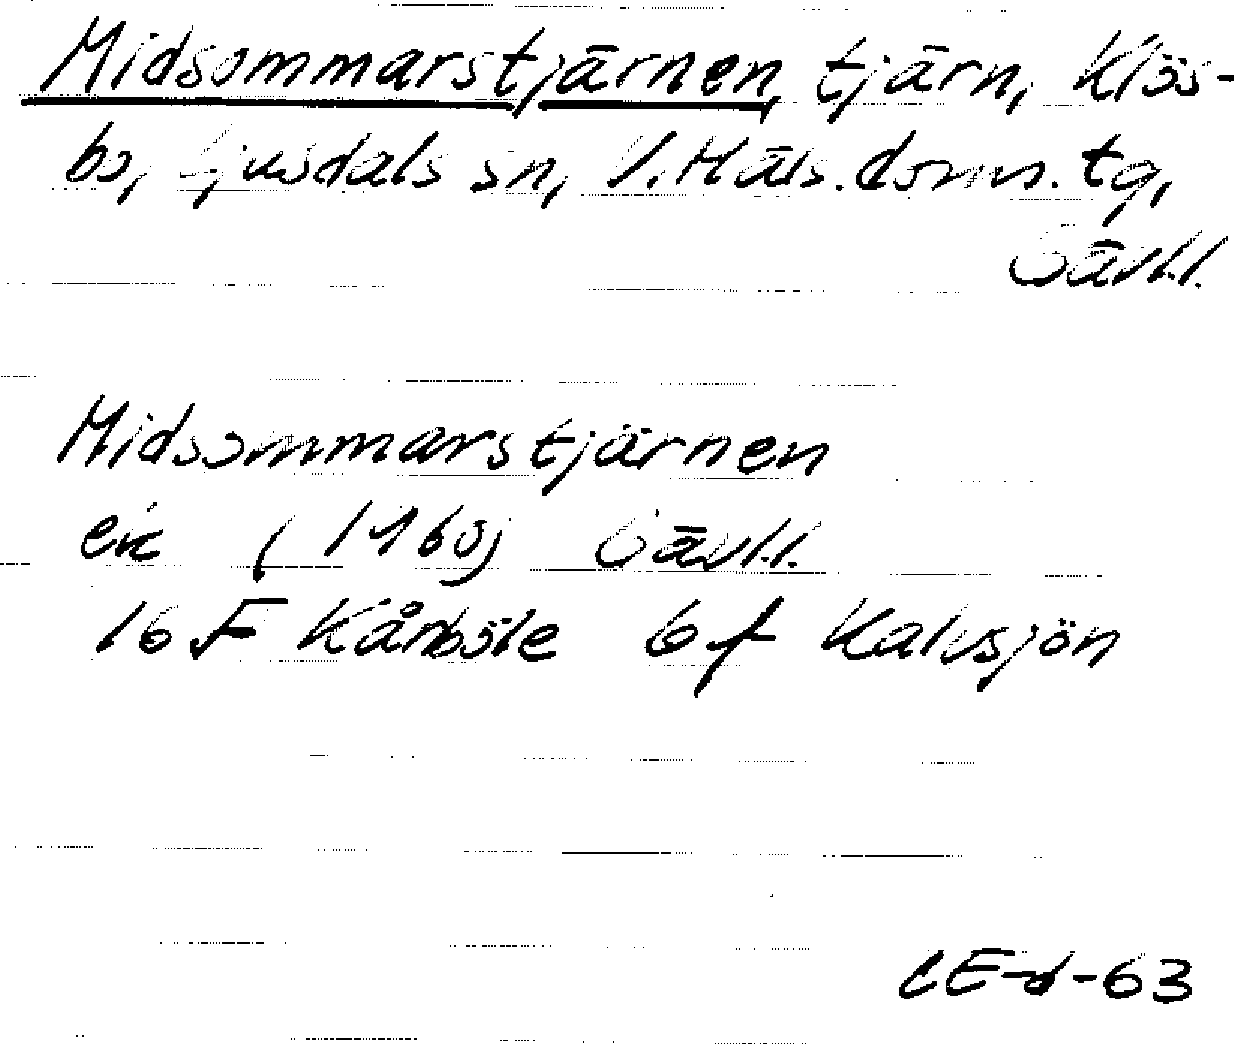 Midsommarstjärnen, tjärn, Klös-
bo, Ljusdals sn, V. Häls. doms. tg,
Gävl.l.
Midsommarstjärnen
ek (1960) Gävl.l.
16 F Kårböle 6 f Kalvsjön
CE-d-63